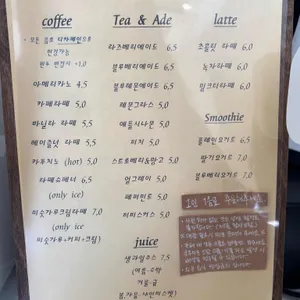 coffee
• 모든 음료 디카페인으로
변경가능
원두 변경시 +1,0
아메리카노 4,5
카페라떼 5,0
바닐라 라떼 5,5
헤이즐넛 라떼 5,5
카푸치노 (hot) 5,0
라떼슈페너 6,0
(only ice)
미숫가루크림라떼 7,0
(only ice
미숫가루+커피+크림)
Tea & Ade
라즈베리에이드 6,5
블루베리에이드 6,5
블루레몬에이드 6,5
레몬그라스 5,0
애플시나몬 5,0
피치 5,0
스트로베리&망고 5,0
얼그레이 5,0
페퍼민트 5,0
히비스커스 5,0
juice
생과일쥬스 7,5
(여름-수박
겨울-귤
latte
초콜릿 라떼 6,0
녹차라떼 6,0
밀크티라떼 6,0
Smoothie
플레인요거트 6,5
딸기요거트 7,0
블루베리요거트 7,0
1인 음료 주문해주세요